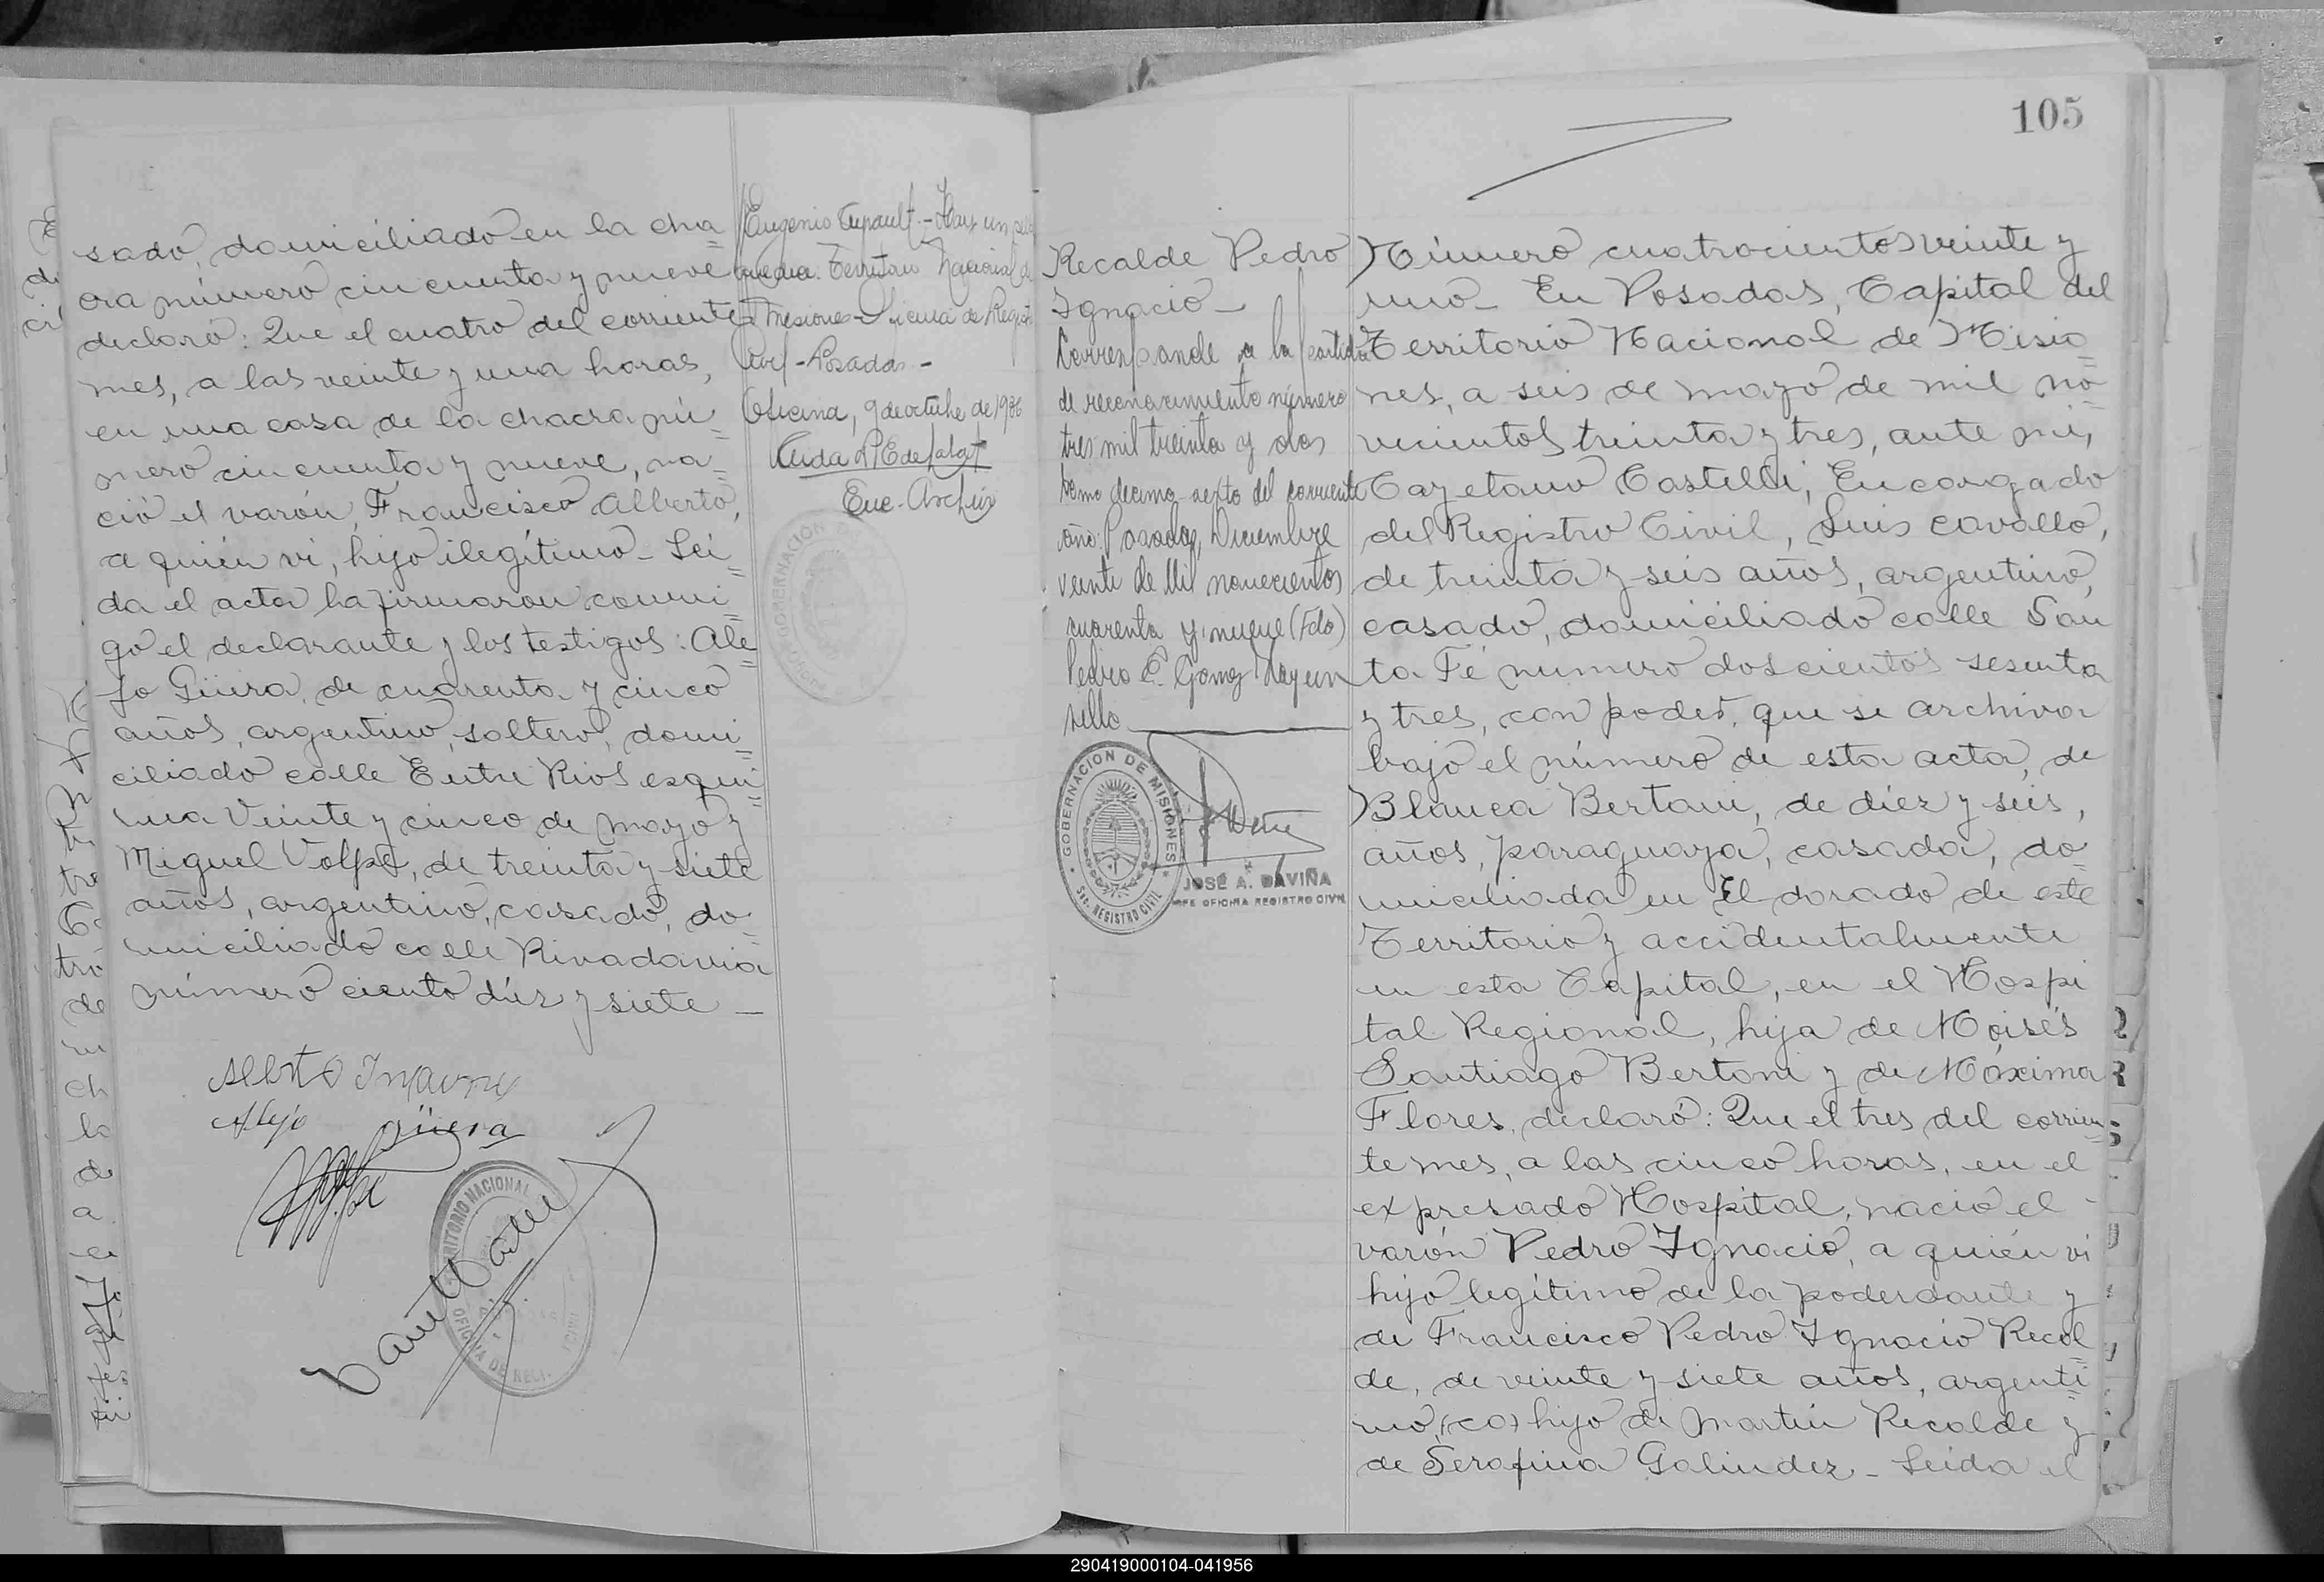 sado, domiciliado en la cha=
cra número cincuenta y nueve
declaró: Que el cuatro del corriente
mes, a las veinte y una horas,
en una casa de la chacra nú=
mero cincuenta y nueve, na=
ció el varón, Francisco Alberto,
a quién vi, hijo ilegítimo_ Leí=
da el acta la firmaron conmi=
go el declarante y los testigos: Ale=
jo Güera, de cuarenta y cinco
años, argentino, soltero, domi=
ciliado calle Entre Rios esqui=
na Veinte y cinco de mayo y
Miguel Volpe, de treinta y siete
años, argentino, casado, do=
miciliado calle Rivadavia
número ciento diez y siete _
Alejo Güera
Eugenio - Hay un
que dice: Territorio Nacional de
Misiones - Oficina de Registro
Civil - Posadas -
Oficina, 9 de octubre de 19
Enc. Archivo
105
Recalde Pedro
Ignacio_
Corresponde a la partida
de reconocimiento número
tres mil treinta y dos
tomo decimo sexto del corriente
año. Posadas, Diciembre
veinte de Mil novecientos
cuarenta y nueve (Fdo)
Pedro E. Gomez Hay un
sello
GOBERNACION DE MISIONES
Sec. REGISTRO CIVIL
JOSÉ A. DAVIÑA
JEFE OFICINA REGISTRO CIVIL
Número cuatrocientos veinte y
uno_ En Posadas, Capital del
Territorio Nacional de Misio=
nes, a seis de mayo de mil no=
vecientos treinta y tres, ante mi,
Cayetano Castelli, Encargado
del Registro Civil, Luis Cavallo,
de treinta y seis años, argentino,
casado, domiciliado calle San
ta Fé número doscientos sesenta
y tres, con poder, que se archiva
bajo el número de esta acta, de
Blanca Bertoni, de diez y seis,
años, paraguaya, casada, do=
miciliada en El dorado de este
Territorio y accidentalmente
en esta Capital, en el Hospi
tal Regional, hija de Moisés
Santiago Bertoni y de Máxima
Flores, declaró: Que el tres del corrien=
te mes, a las cinco horas, en el
expresado Hospital, nació el
varón Pedro Ignacio, a quién vi
hijo legítimo de la poderdante y
de Francisco Pedro Ignacio Recal=
de, de veinte y siete años, argenti=
no, (co) hijo de Martín Recalde y
de Serafina Galindez_ Leída el
290419000104-041956